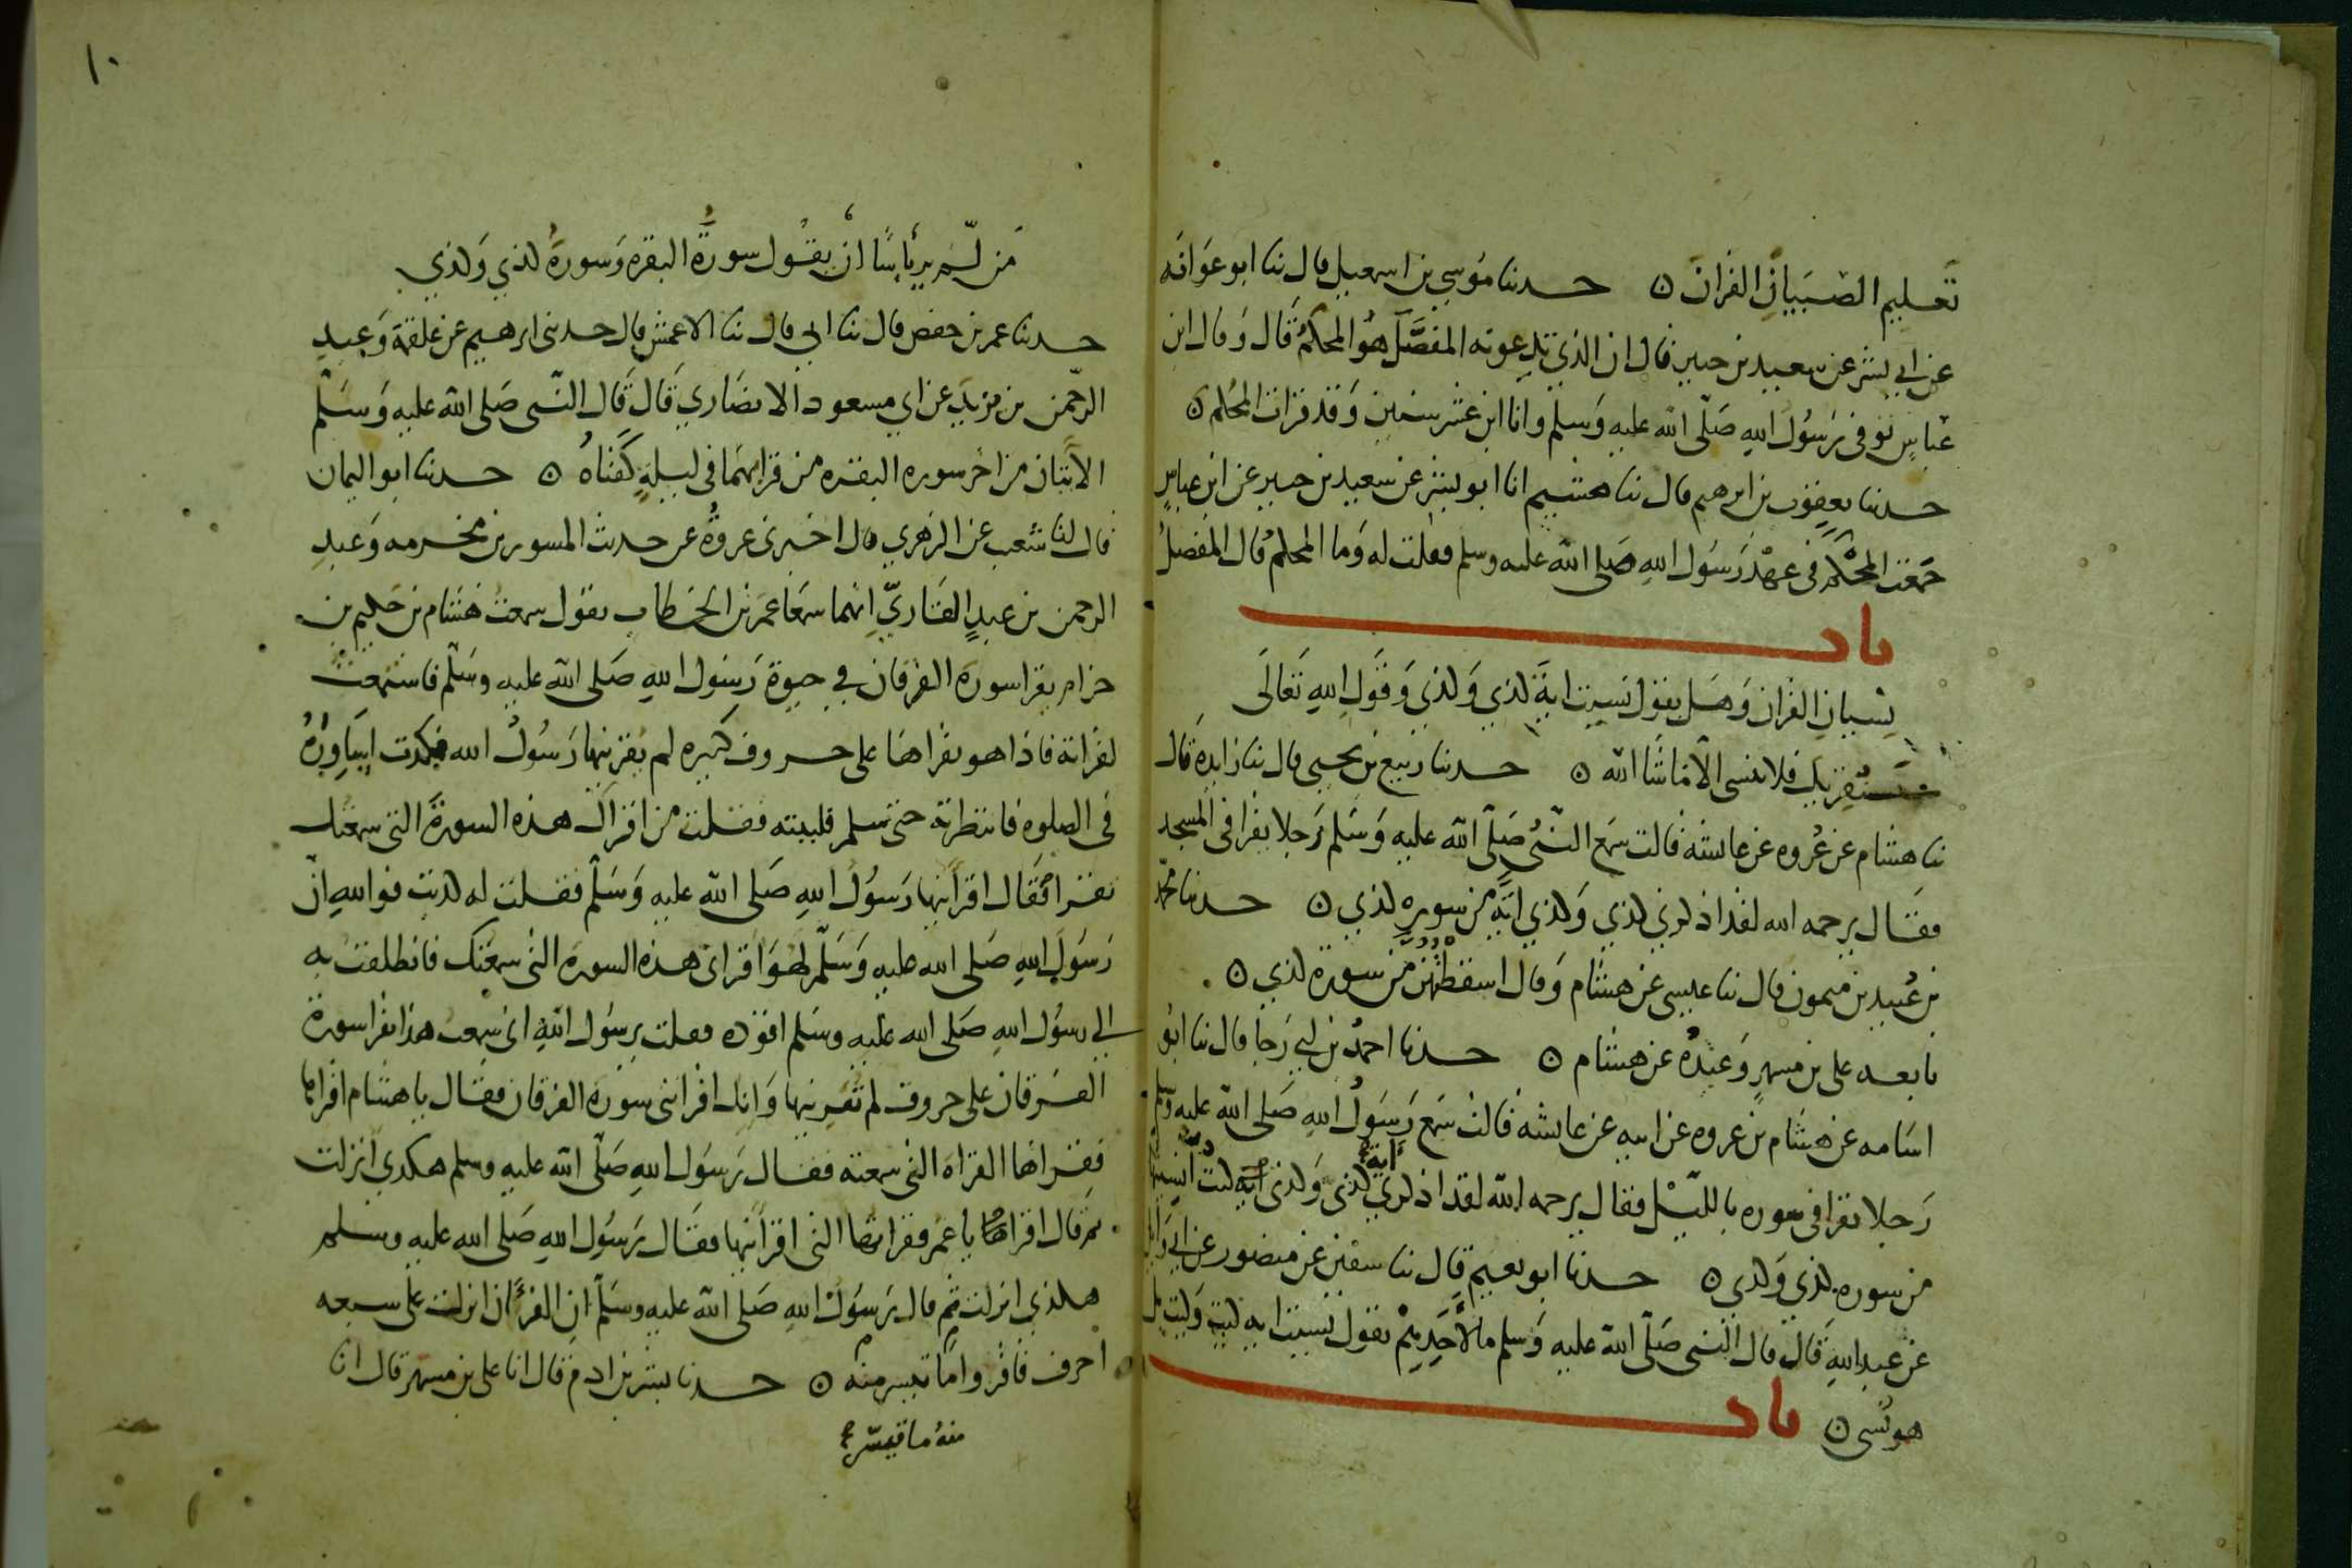 تعليم الصبيان القران ۞ حدثنا موسى بن اسمعيل قال ثنا ابو عوانه
عن ابي بشر عن سعيد بن جبير قال ان الذي تدعونه المفصل هو المحكم قال وقال ابن
عباس توفى رسول الله صلى الله عليه وسلم وانا ابن عشر سنين وقد قرات المحكم ۞
حدثنا يعقوب بن ابرهيم قال ثنا هشيم انا ابو بشر عن سعيد بن جبير عن ابن عباس
جمعت المحكم في عهد رسول الله صلى الله عليه وسلم فقلت له وما المحكم قال المفصل
باب
نسيان القران وهل يقول نسيت اية كذى وكذى وقول الله تعالى
سنقريك فلا تنسى الا ما شا الله ۞ حدثنا ربيع بن يحيى قال ثنا زايدة قال
ثنا هشام عن عروه عن عايشه قالت سمع النبي صلى الله عليه وسلم رجلا يقرا في المسجد
فقال يرحمه الله لقد اذكرني كذي وكذي اية من سوره كذي ۞ حدثنا محمد
بن عبيد بن ميمون قال ثنا عيسى عن هشام وقال اسقطتهن من سورة كذي ۞
تابعه على بن مسهر وعبدة عن هشام ۞ حدثنا احمد بن ابي رجا قال ثنا ابو
اسامه عن هشام بن عروه عن ابيه عن عايشه قالت سمع رسول الله صلى الله عليه وسلم
رجلا يقرا في سوره بالليل فقال يرحمه الله لقد اذكرني كذى وكذى اية كنت انسيتها
اية
من سوره كذي وكذي ۞ حدثنا ابو نعيم قال ثنا سفين عن منصور عن ابي وايل
عن عبد الله قال قال النبي صلى الله عليه وسلم ما لاحدهم يقول نسيت اية كيت وكيت بل
هو نسي ۞ باب
١٠
من لم ير باسا ان يقول سورة البقره وسورة كذي وكذي
حدثنا عمر بن حفص قال ثنا ابي قال ثنا الاعمش قال حدثنى ابرهيم عن علقمة وعبد
الرحمن بن يزيد عن ابي مسعود الانصاري قال قال النبي صلى الله عليه وسلم
الايتان من اخر سوره البقره من قرا بهما في ليلة كفتاه ۞ حدثنا ابو اليمان
قال لنا شعيب عن الزهري قال اخبرنى عروة عن حديث المسور بن مخرمه وعبد
الرحمن بن عبد القاري انهما سمعا عمر بن الخطاب يقول سمعت هشام بن حكيم بن
حزام يقرا سورة الفرقان في حيوة رسول الله صلى الله عليه وسلم فاستمعت
لقراته فاذا هو يقراها على حروف كثيره لم يقرينها رسول الله فكدت اساوره
في الصلوه فانتظرته حتى سلم فلببته فقلت من اقراك هذه السورة التى سمعتك
تقرا فقال اقرانيها رسول الله صلى الله عليه وسلم فقلت له كذبت فوالله ان
رسول الله صلى الله عليه وسلم لهو اقرانى هذه السوره التى سمعتك فانطلقت به
الى رسول الله صلى الله عليه وسلم اقوده فقلت يرسول الله انى سمعت هذا يقرا سورة
الفرقان على حروف لم تقرينها وانك اقراتنى سورة الفرقان فقال يا هشام اقراها
فقراها القراة التي سمعته فقال رسول الله صلى الله عليه وسلم هكذي انزلت
ثم قال اقراها يا عمر فقراتها التى اقرانيها فقال رسول الله صلى الله عليه وسلم
هكذي انزلت ثم قال رسول الله صلى الله عليه وسلم ان القران انزلت على سبعه
احرف فاقروا ما تيسر منه ۞ حدثنا بشر بن ادم قال انا على بن مسهر قال انا
منه ما تيسر